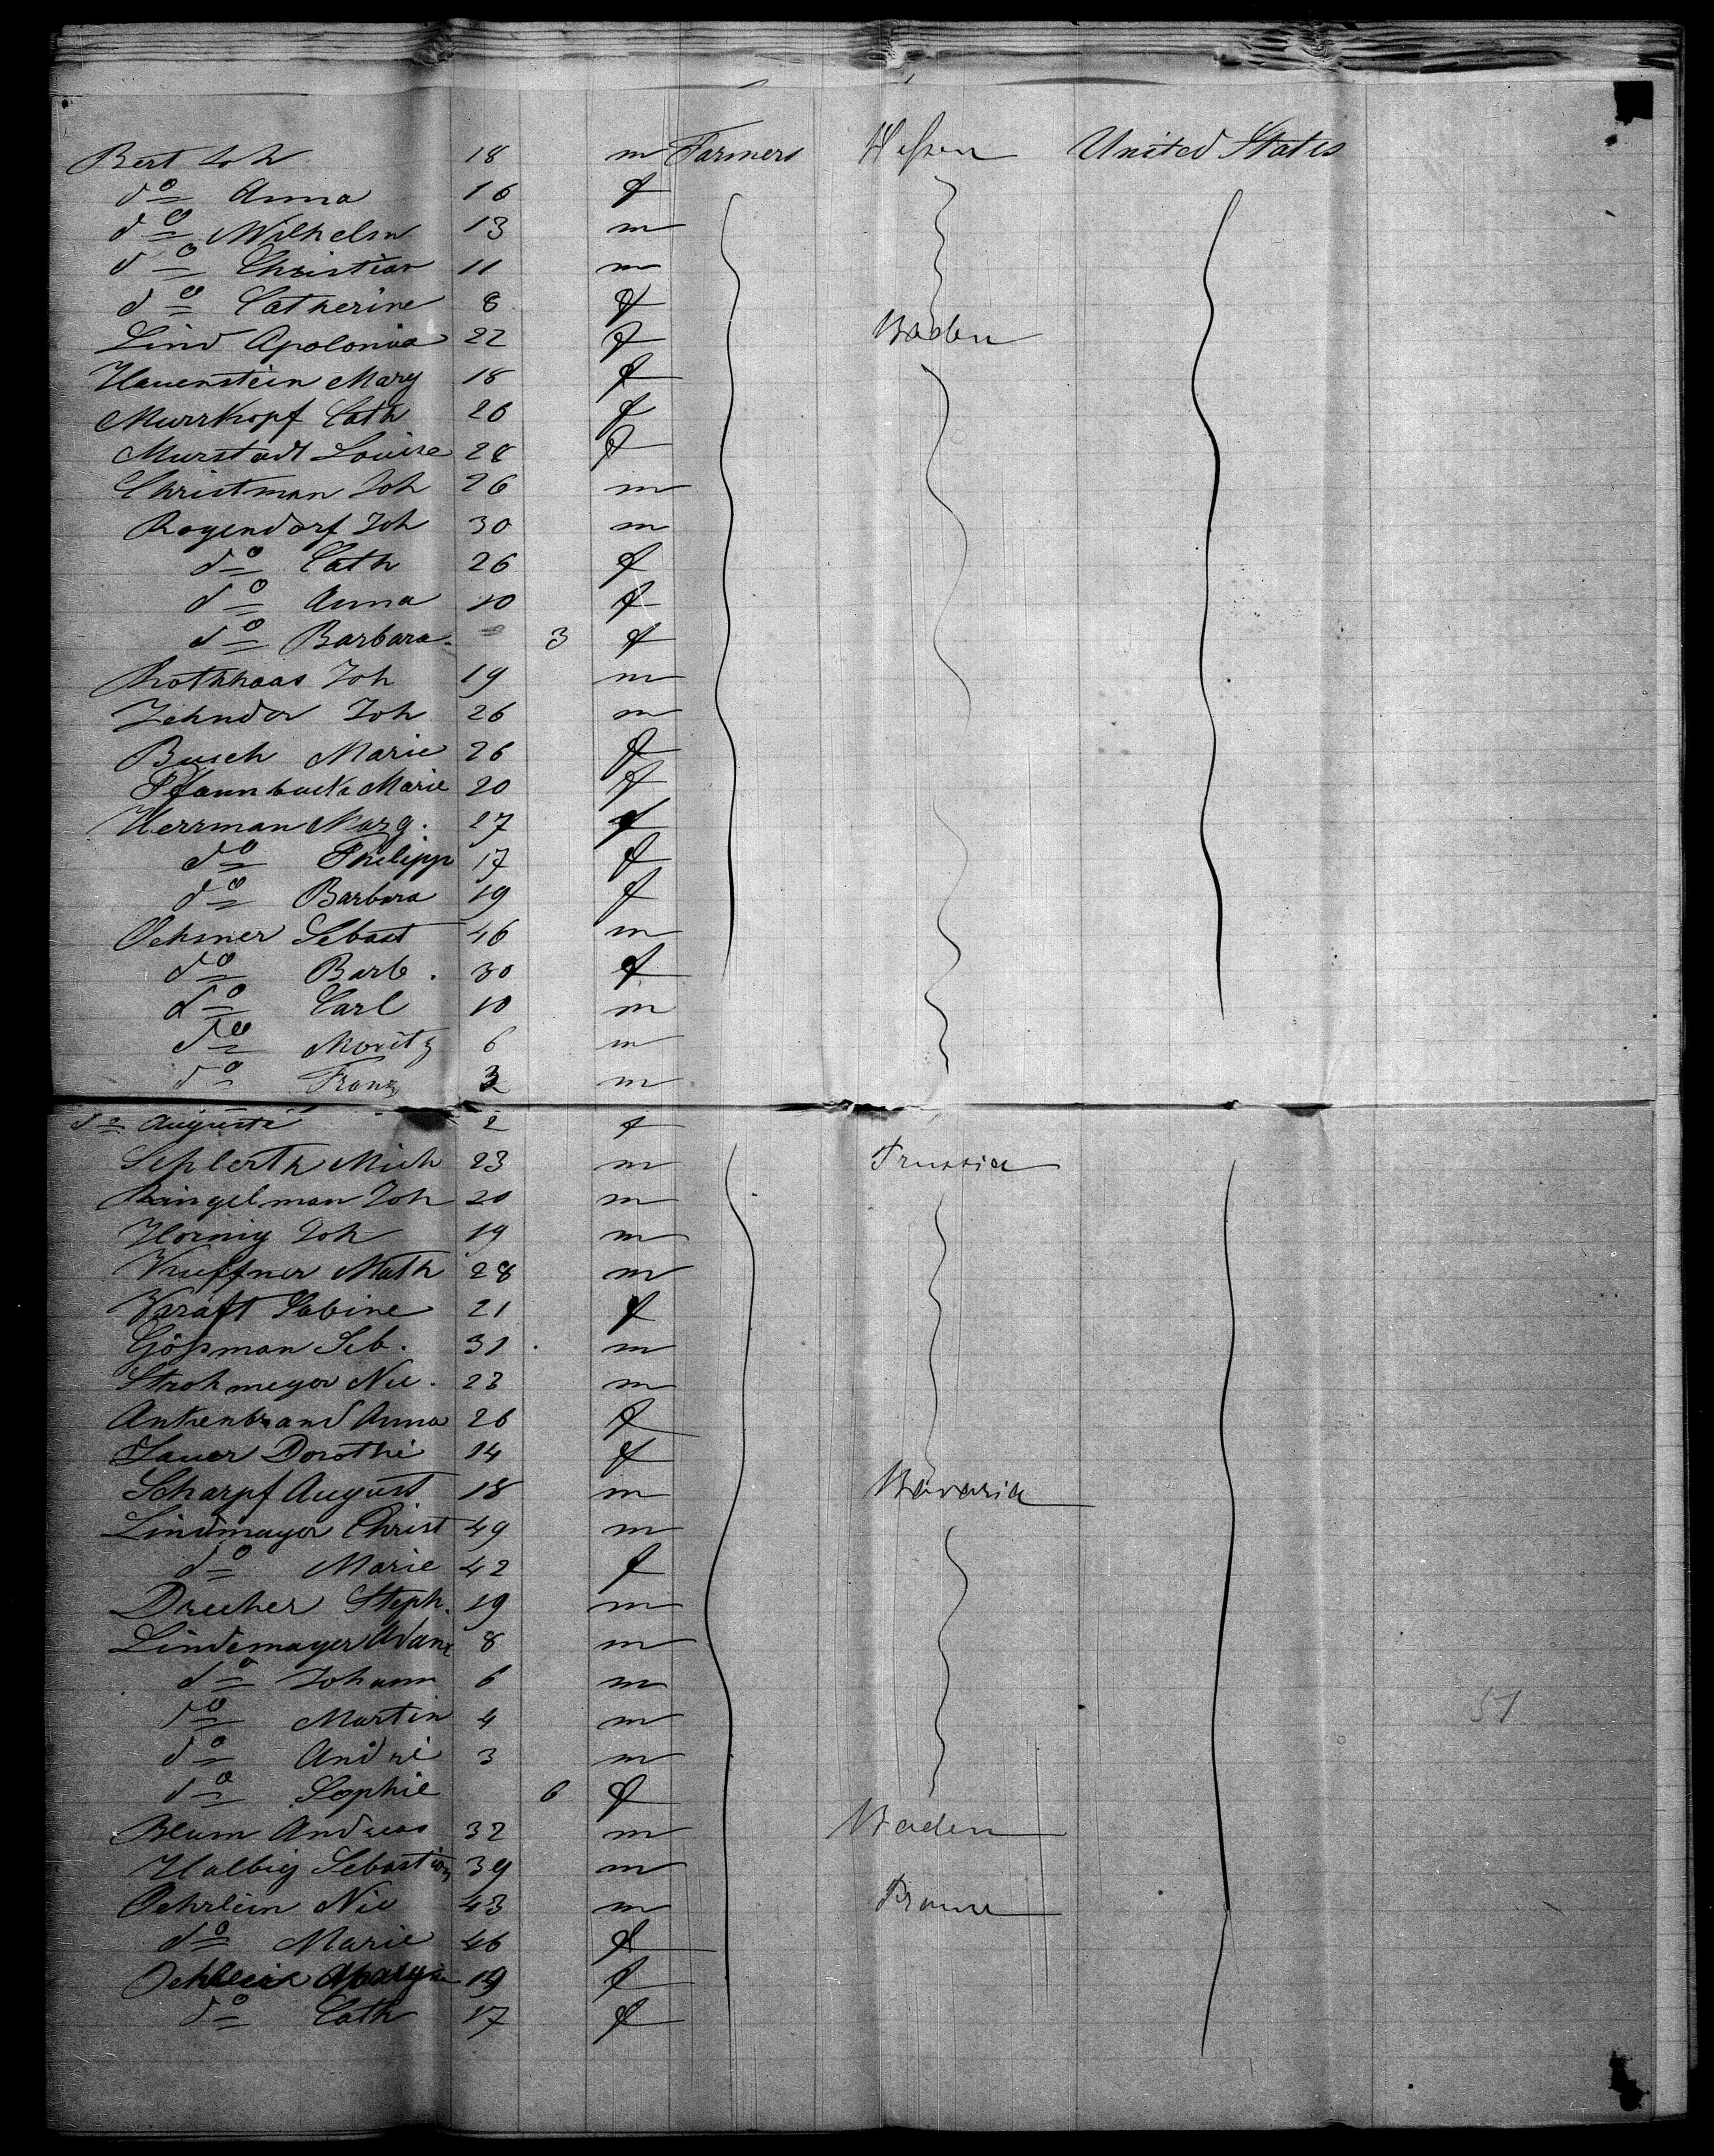 Bert Joh 18 m Farmers Heßen United States
do Anna 16 f
do Wilhelm 13 m
do Christian 11 m
do Catherine 8 f
Lind Apolonia 22 f Baden
Hauenstein Mary 18 f
Murrkopf Cath 26 f
Murstadt Louise 28 f
Christman Joh 26 m
Rogendorf Joh 30 m
do Cath 26 f
do Anna 10 f
do Barbara 3 f
Rothhaas Joh 19 m
Zehnder Joh 26 m
Busch Marie 26 f
Pfannbuck Marie 20 f
Herrman Marg. 27 f
do Philipp 17 f
do Barbara 19 f
Ochsner Sebast 46 m
do Barb. 30 f
do Carl 10 m
do Moritz 6 m
do Franz 3 m
do Auguste 2 f
Mich 23 m Prussia
Ringelman Joh 20 m
Hornig Joh 19 m
Kueffner Math 28 m
Kraft Sabine 21 f
Gößman Seb. 31 m
Strohmeyer Nic. 23 m
Ankenbrand Anna 26 f
Sauer Dorothe 14 f
Scharpf August 18 m Bavaria
Lindmayer Christ 49 m
do Marie 42 f
Drecher Steph. 19 m
Lindemayer Adam 8 m
do Johann 6 m
do Martin 4 m
do André 3 m
do Sophie 6 f
Blum Andreas 32 m Baden
Halbig Sebastian 39 m
Oehrlein Nic 43 m
do Marie 46 f
19 f
do Cath 17 f
51